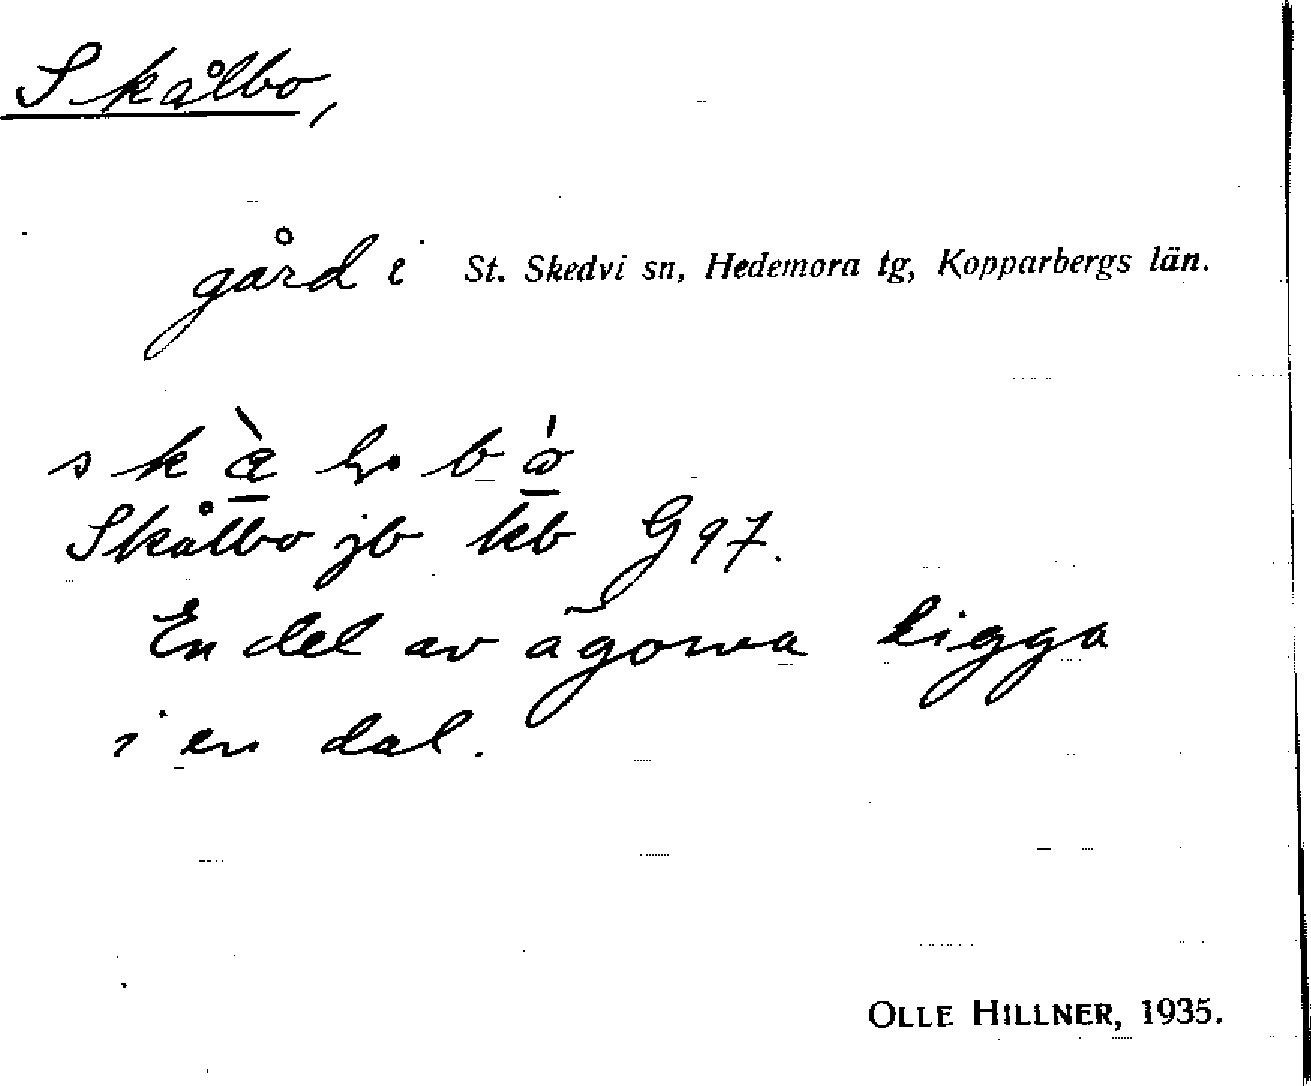 Skålbo,
gård i St. Skedvi sn, Hedemora tg, Kopparbergs län.
Skålbo jb kb G97.
En del av ägorna ligga
i en dal.
OLLE HILLNER, 1935.